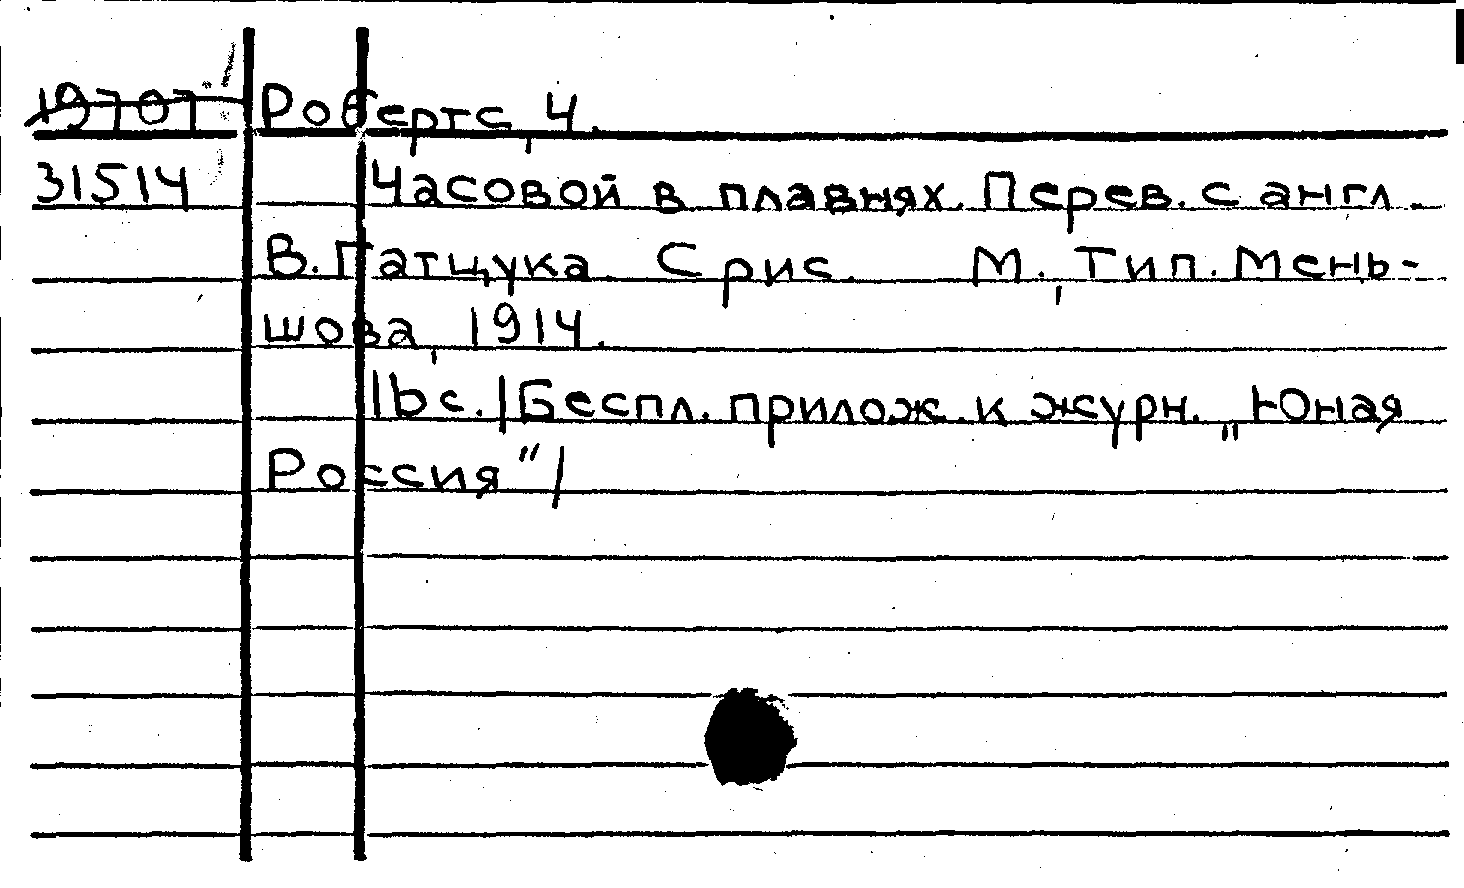 19707 Робертс, Ч.
31514 Часовой в плавнях. Перев. с англ.
В. Гатцука. С рис. М., Тип. Мень-
шова, 1914.
16 с. /Беспл. прилож. к журн. „Юная
Россия"/